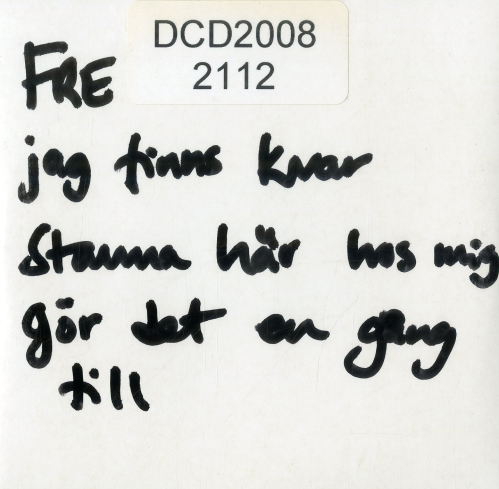 DCD2008
2112
FRE
jag finns kvar
Stanna här hos mig
gör det en gång
till